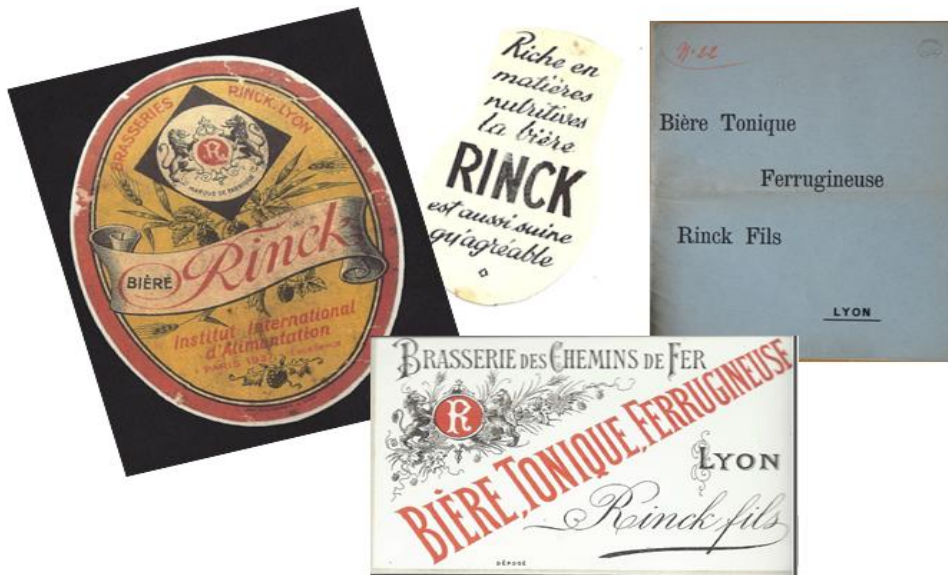 BRASSERIES RINCK. LYON
R
MARQUE DE FABRIQUE
BIÈRE Rinck
Institut International
d'Alimentation
PARIS 1937
Riche en
matières
nutritives
la bière
RINCK
est aussi saine
qu'agréable
N° 22
Bière Tonique
Ferrugineuse
Rinck Fils
LYON
BRASSERIE DES CHEMINS DE FER
R
BIÈRE, TONIQUE, FERRUGINEUSE
LYON
Rinck fils
DÉPOSÉ